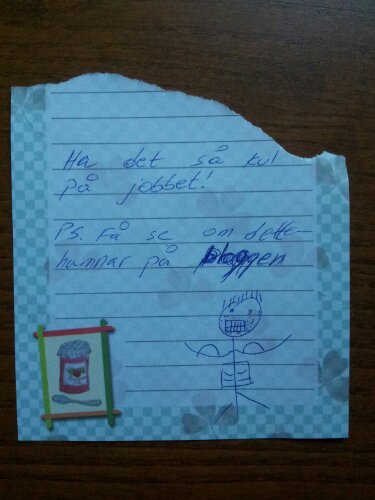 Ha det så kul
på jobbet!
PS. Få se om detta
hamnar på bloggen